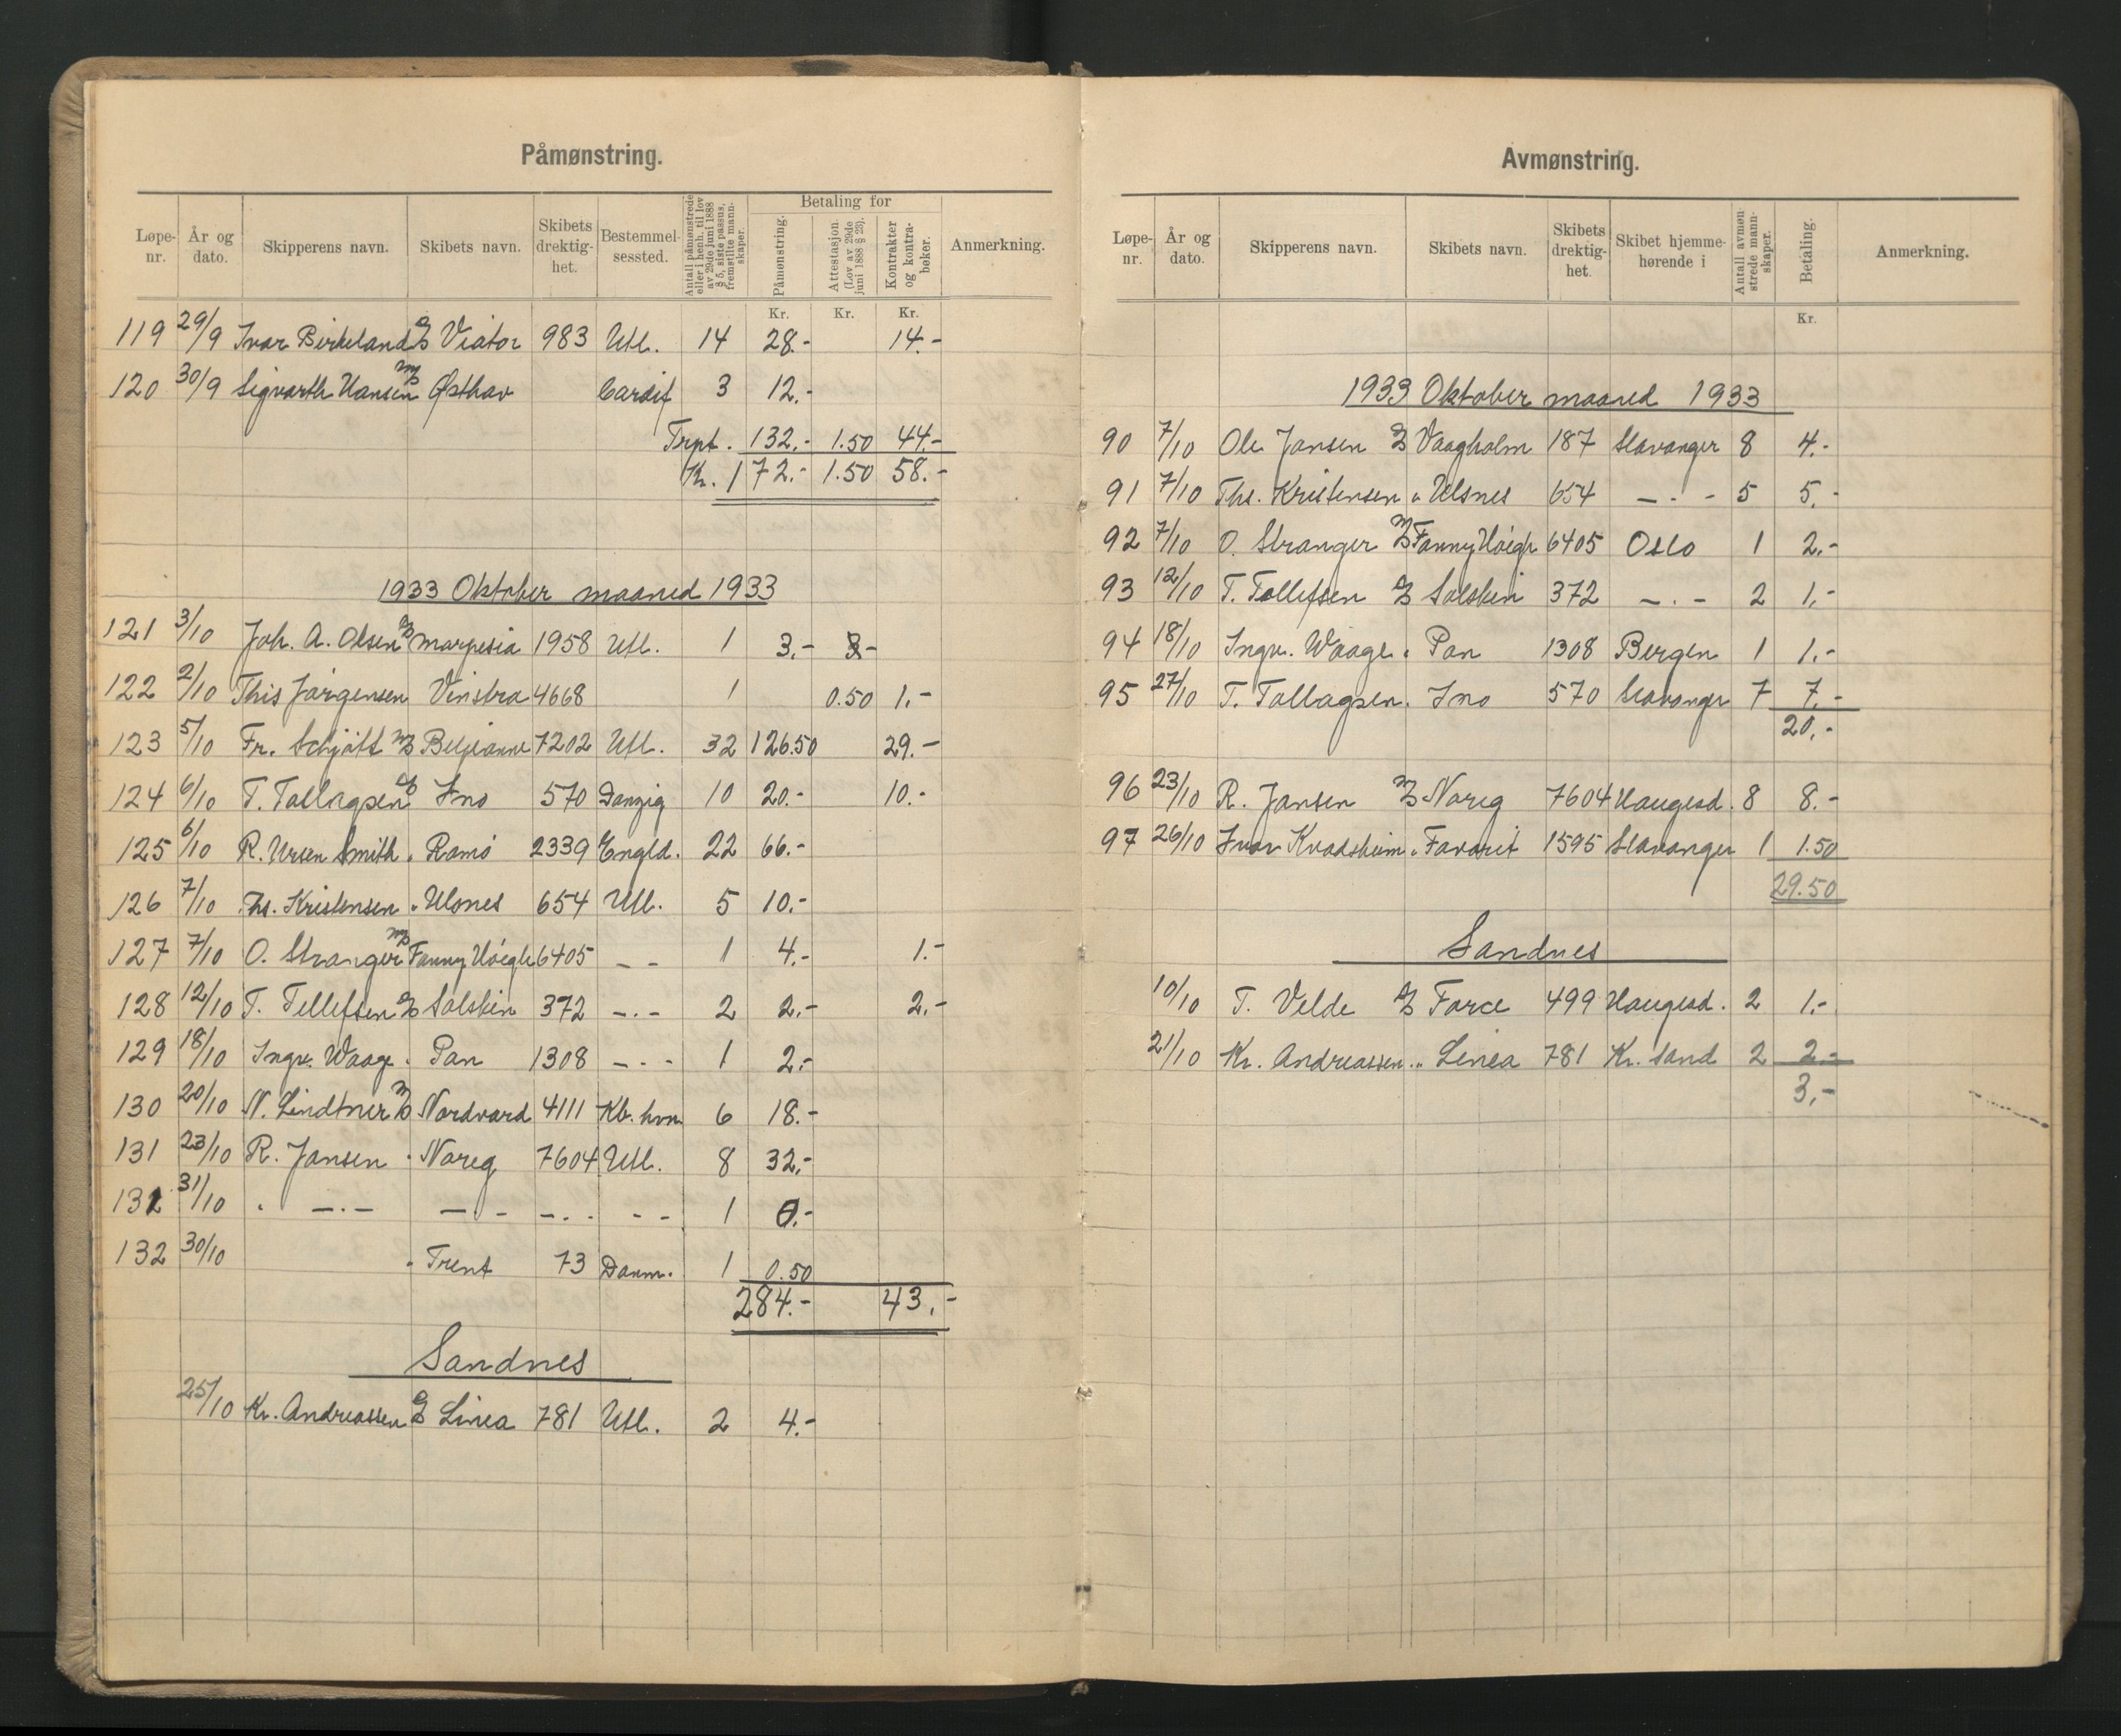 Påmønstring.
Løpe-nr. År og dato. Skipperens navn. Skibets navn. Skibets drektig-het. Bestemmel-sessted. Antall påmønstrede eller i henh. til lov av 29de juni 1888 § 5, siste passus, fremstilte mann-skaper. Betaling for Påmønstring. Attestasjon (Lov av 29de juni 1888 § 23). Kontrakter og kontra-bøker. Anmerkning.
Kr. Kr. Kr.
119 29/9 Ivar Birkeland Viator 983 Utl. 14 28.- 14.-
120 30/9 Sigvarth Hansen Østhav Cardif 3 12.-
Trpt. 132.- 1.50 44.-
Kr. 172.- 1.50 58.-
1933 Oktober maaned 1933
121 3/10 Joh. A. Olsen Marpesia 1958 Utl. 1 3.-
122 2/10 Ths Jørgensen Vinstra 4668 1 0.50 1.-
123 5/10 Fr. Schjött 7202 Utl. 32 126.50 29.-
124 6/10 T. Tollagsen Ino 570 Danzig 10 20.- 10.-
125 6/10 R. Ursen Smith " Ramö 2339 Engld. 22 66.-
126 7/10 Ths. Kristensen " Ulsnes 654 Utl. 5 10.-
127 7/10 O. Stranger Fanny Höegh 6405 - - 1 4.- 1.-
128 12/10 T. Tellefsen Solskin 372 -.- 2 2.- 2.-
129 18/10 Ingv. Waage " Pan 1308 - - - 1 2.-
130 20/10 N. Lindtner Nordvard 4111 Kb.hvn 6 18.-
131 23/10 R. Jansen " Noreg 7604 Utl. 8 32.-
131 31/10 " -.- - - -.. - - 1 0.-
132 30/10 " Trent 73 Danm. 1 0.50
284.- 43.-
Sandnes
25/10 Kr. Andreassen Linea 781 Utl. 2 4.-
Avmønstring.
Løpe-nr. År og dato. Skipperens navn. Skibets navn. Skibets drektig-het. Skibet hjemme-hørende i Antall avmøn-strede mann-skaper. Betaling. Anmerkning.
Kr.
1933 Oktober maaned 1933
90 7/10 Ole Jansen Vaagholm 187 Stavanger 8 4.-
91 7/10 Ths. Kristensen " Ulsnes 654 - . - 5 5.-
92 7/10 O. Stranger Fanny Höegh 6405 Oslo 1 2.-
93 12/10 T. Tollefsen Solskin 372 - . - 2 1.-
94 18/10 Ingv. Waage " Pan 1308 Bergen 1 1.-
95 27/10 T. Tollagsen " Ino 570 Stavanger 7 7.-
20.-
96 23/10 R. Jansen Noreg 7604 Haugesd. 8 8.-
97 26/10 Ivar Kvadsheim " Favorit 1595 Stavanger 1 1.50
29.50
Sandnes
10/10 T. Velde Force 499 Haugesd. 2 1.-
21/10 Kr. Andreassen " Linea 781 Kr. sand 2 2.-
3.-